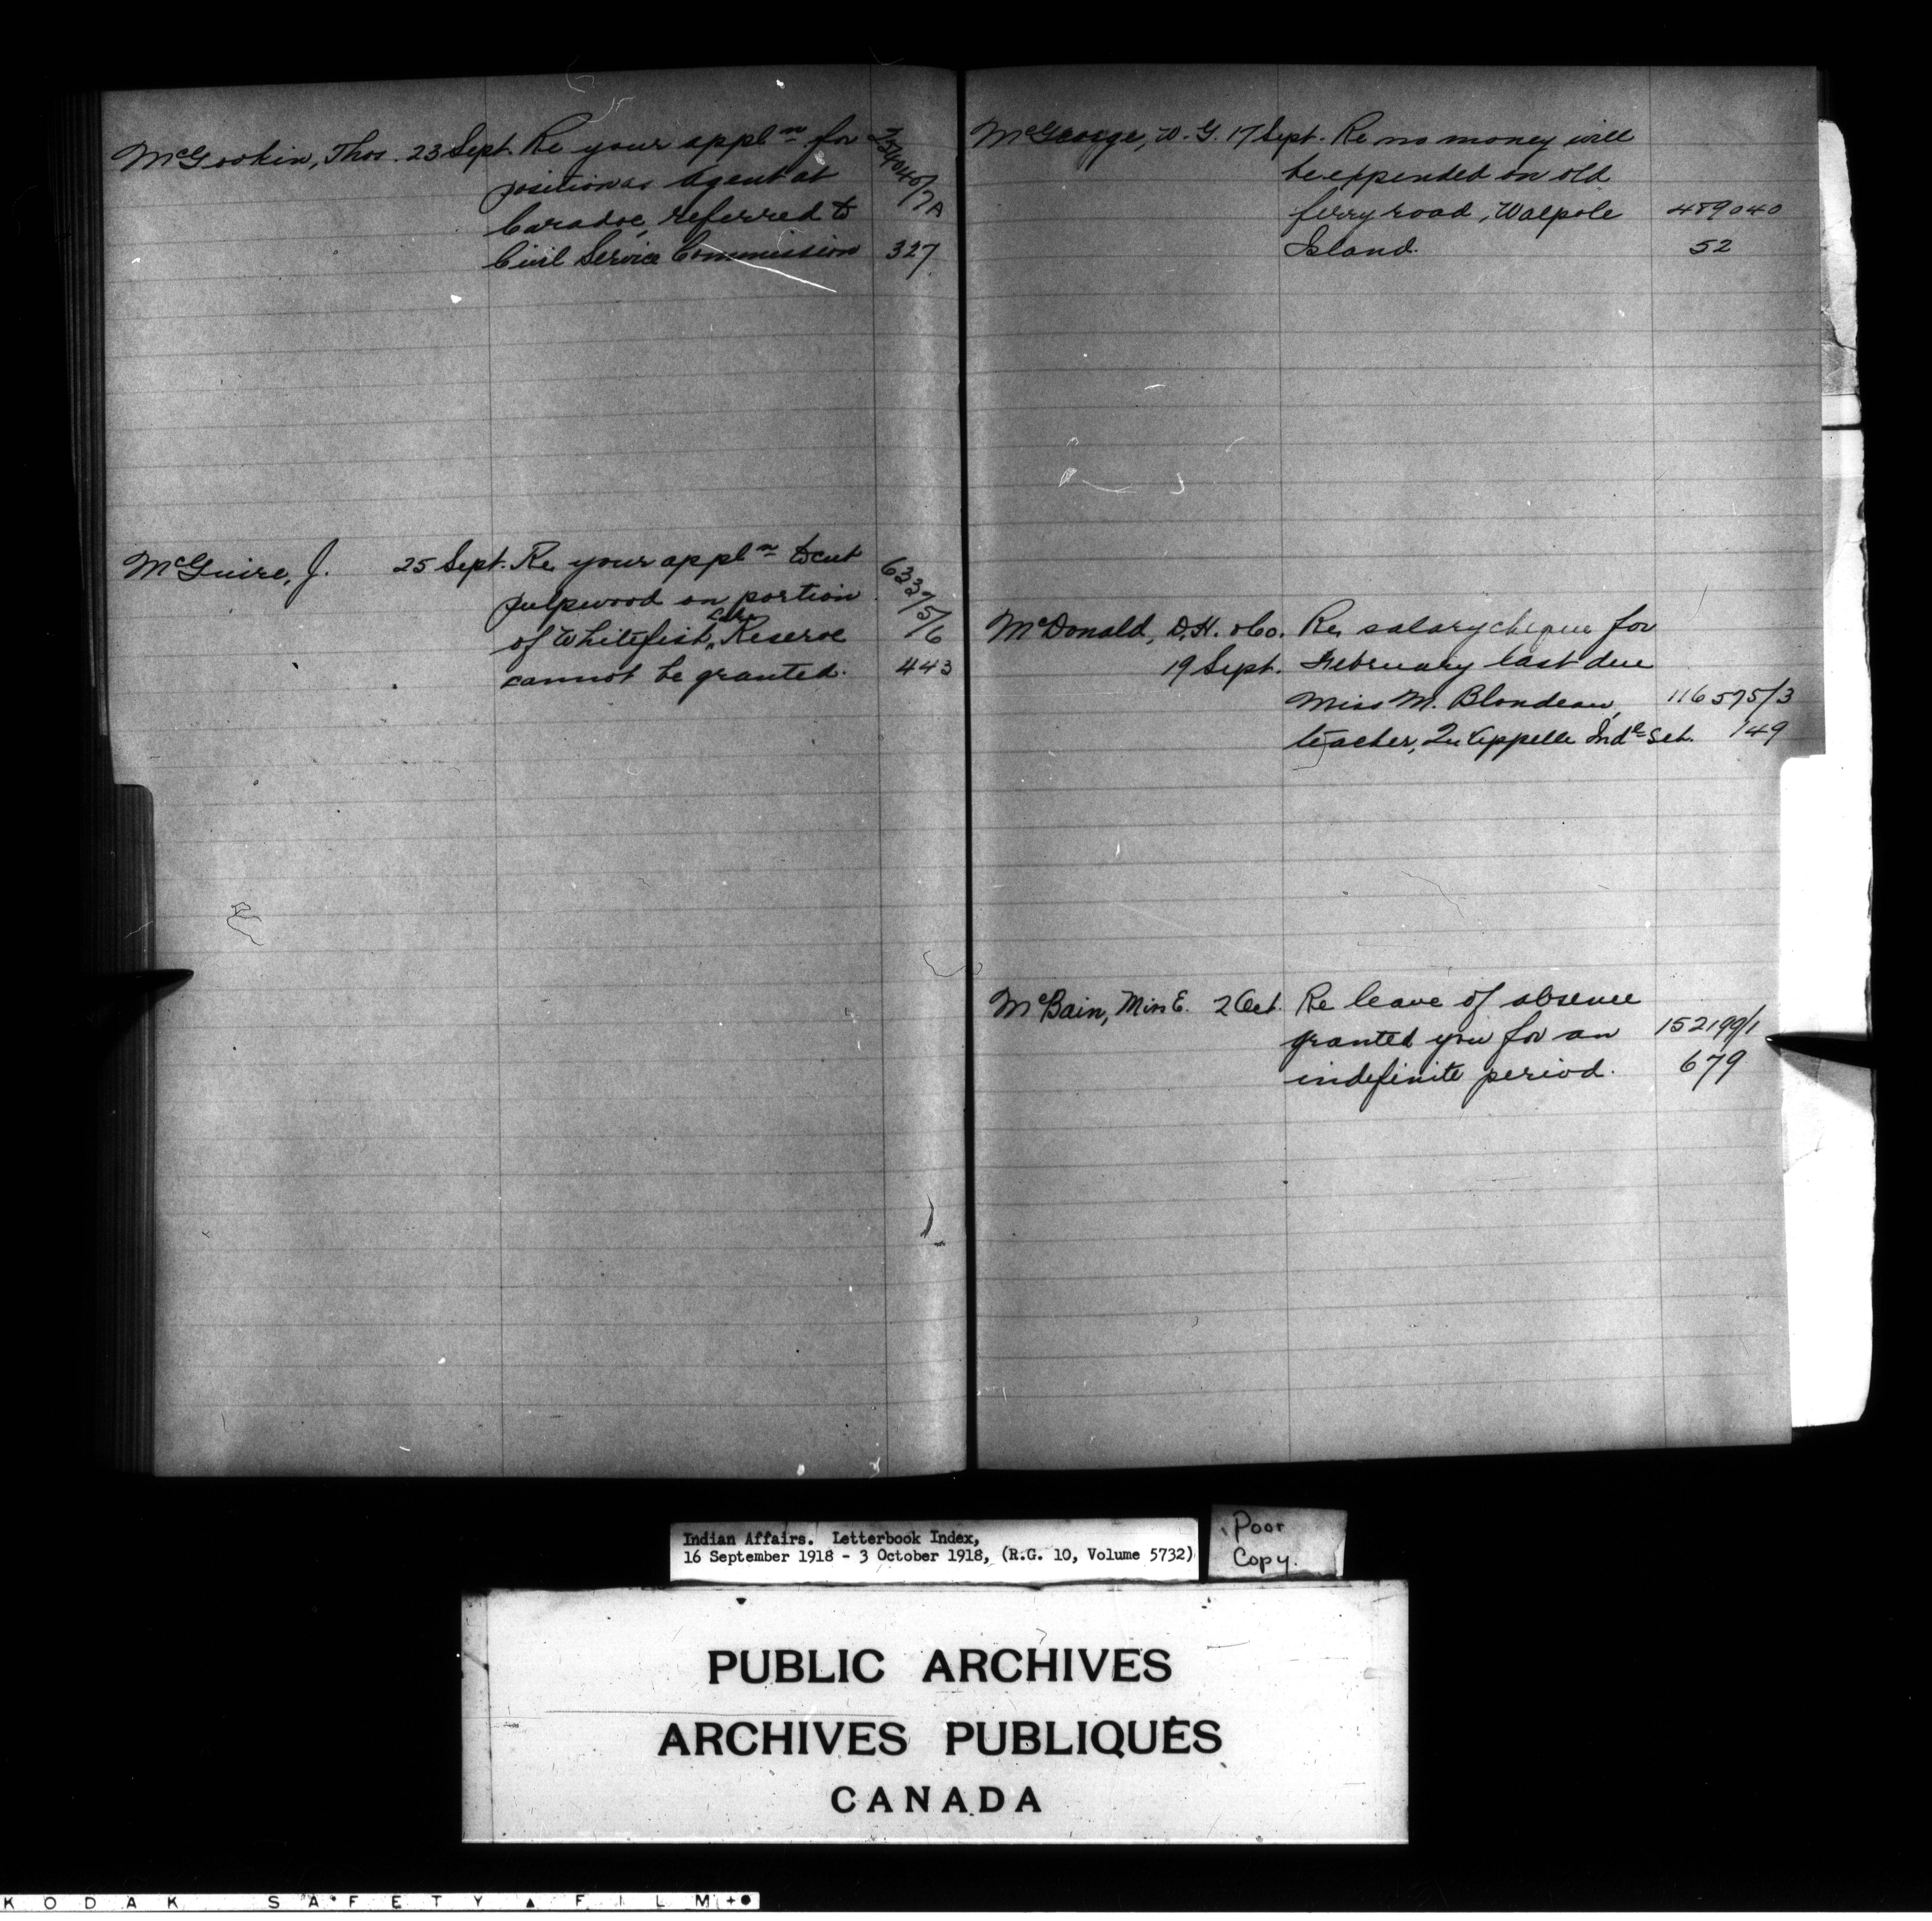 McGookin, Thos. 23 Sept. Re your appln for
position as Agent at
Caradoc, referred to
Civil Service Commission 327
McGuire, J. 25 Sept. Re your appln to cut
pulpwood on portion
of Whitefish Lake Reserve
cannot be granted. 443
6337/5/6
McGeorge, W. G. 17 Sept. Re no money will
be expended on old
ferry road, Walpole 489040
Island. 52
McDonald, D.H. &Co. Re salary cheque for
19 Sept. February last due
Miss M. Blondeau, 116575/3
teacher, Qu'Appelle Indl Sch. 149
McBain, Miss E. 2 Oct. Re leave of absence
granted you for an 152199/1
indefinite period. 679
Indian Affairs. Letterbook Index,
16 September 1918 - 3 October 1918, (R.G. 10, Volume 5732)
Poor
Copy.
PUBLIC ARCHIVES
ARCHIVES PUBLIQUES
CANADA
KODAK SAFETY FILM